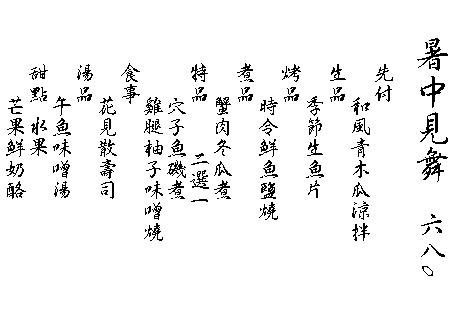 暑中見舞 六八〇
先付
和風青木瓜涼拌
生品
季節生魚片
烤品
時令鮮魚鹽燒
煮品
蟹肉冬瓜煮
特品 二選一
穴子魚磯煮
雞腿柚子味噌燒
食事
花見散壽司
湯品
午魚味噌湯
甜點 水果
芒果鮮奶酪